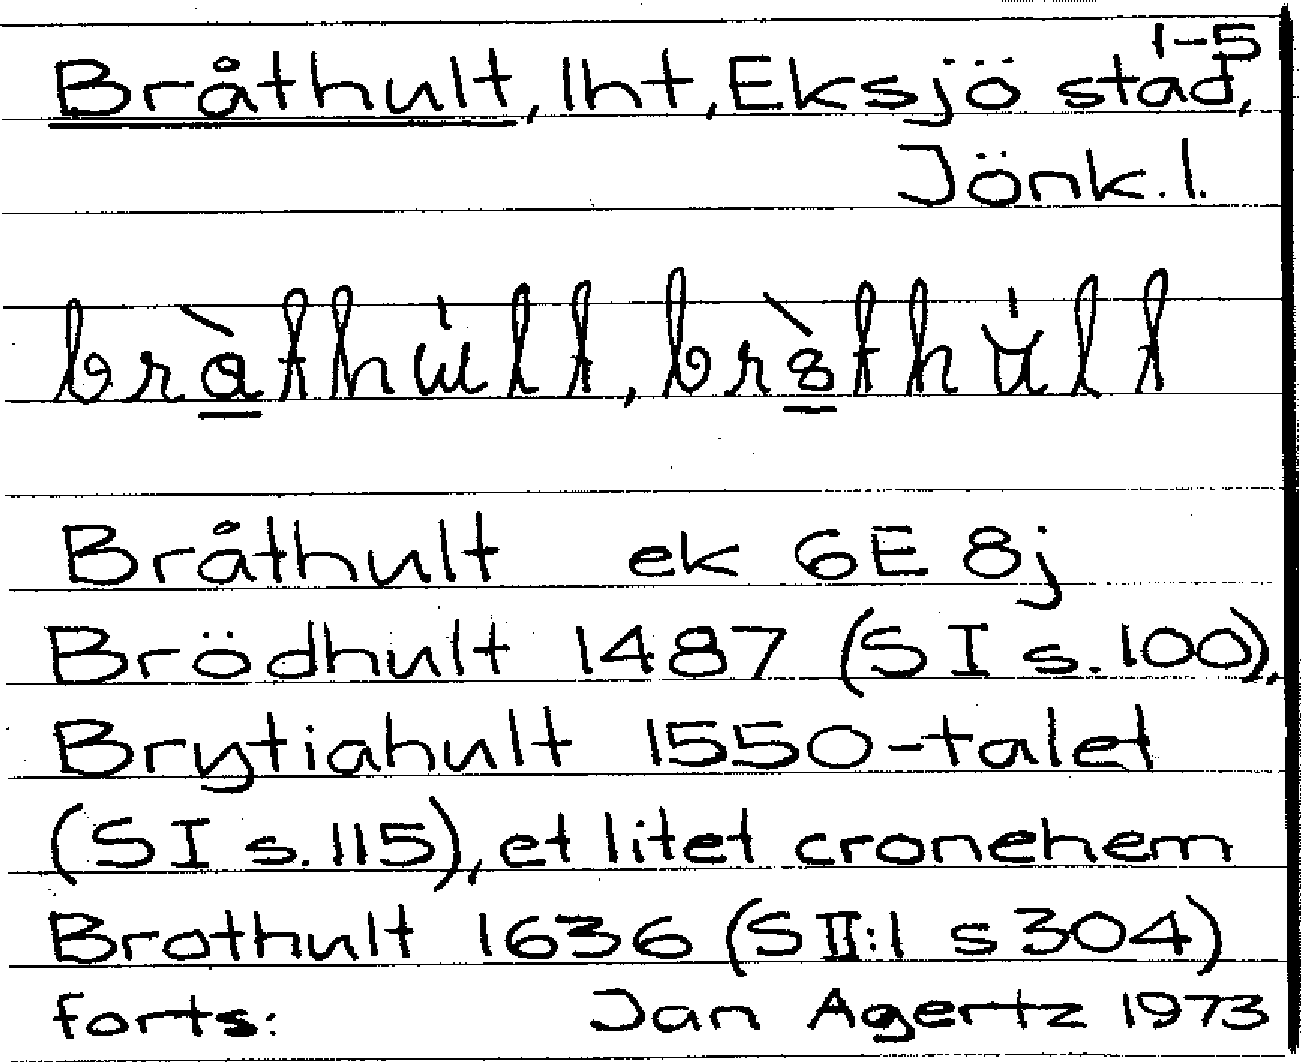 1-5
Bråthult, lht, Eksjö stad,
Jönk. l.
Bråthult ek 6E 8j
Brödhult 1487 (S I s. 100),
Brytiahult 1550-talet
(S I s. 115), et litet cronehem
Brothult 1636 (S II:1 s 304)
forts: Jan Agertz 1973